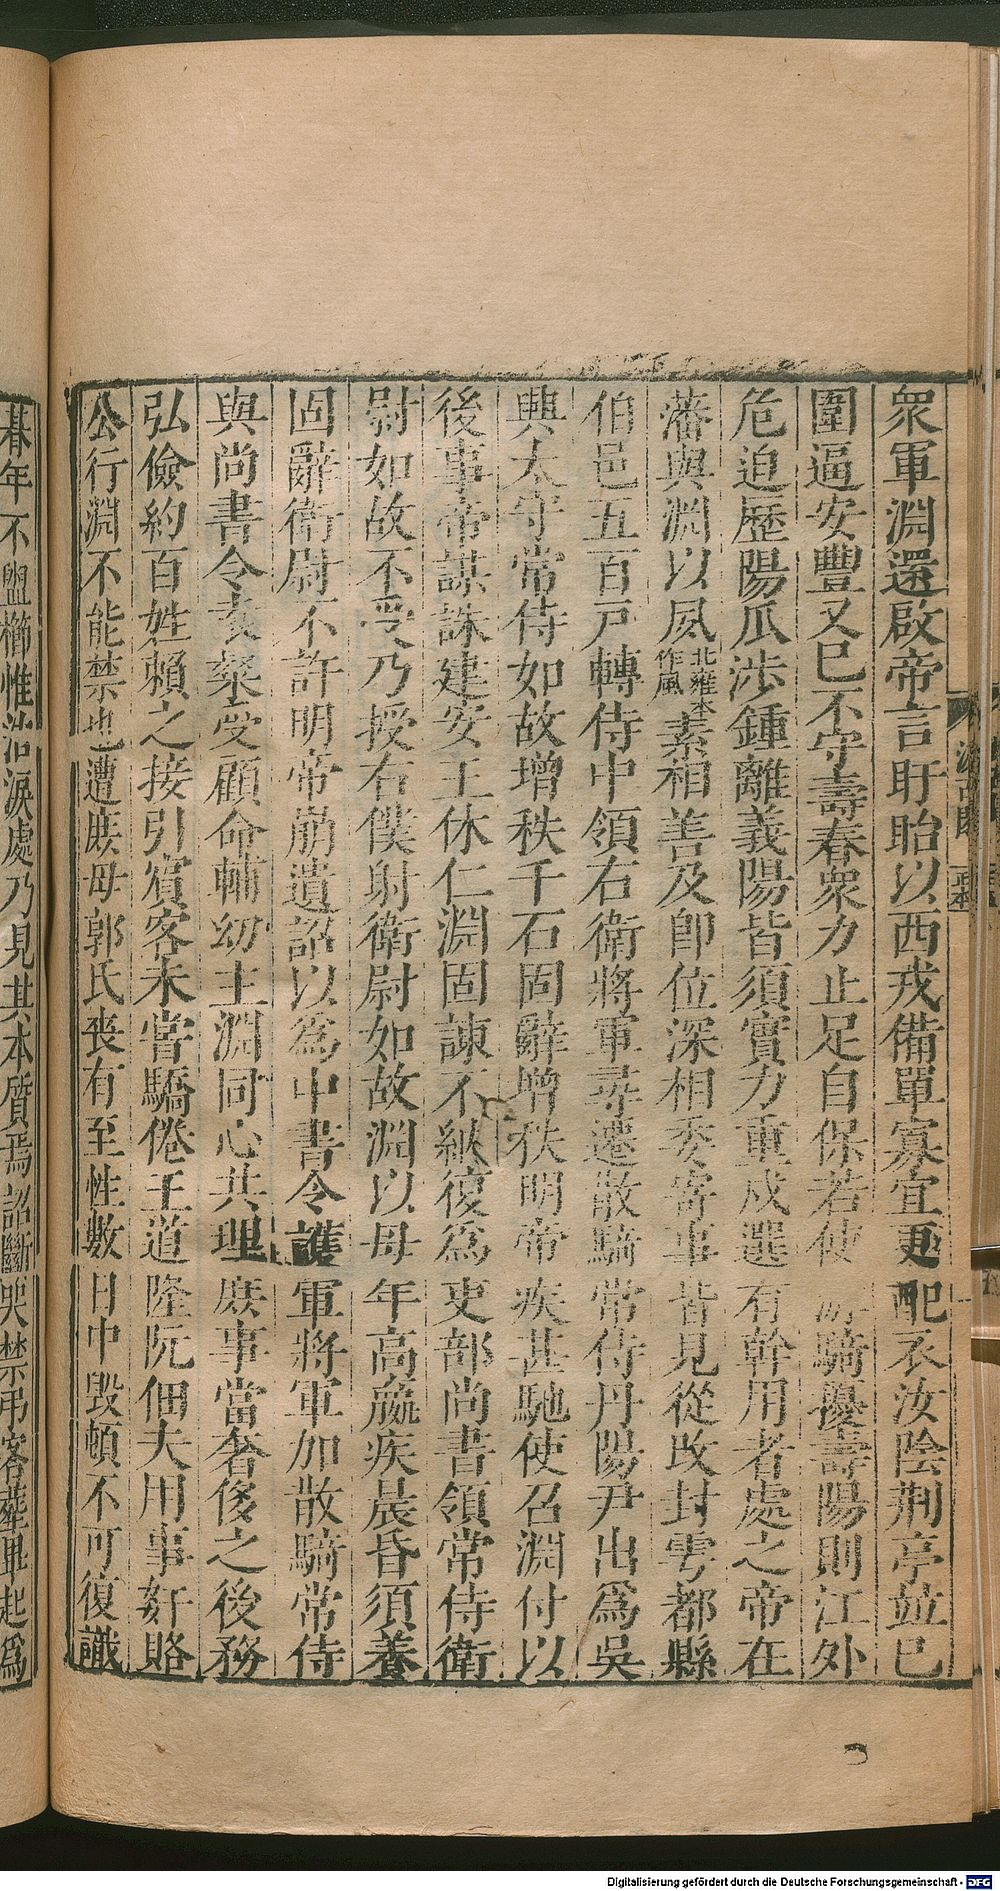 衆軍淵還啟帝言盱眙以西戎備單寡宜更配衣汝陰荊亭並已
圍逼安豐又已不守壽春衆力止足自保若使游騎擾壽陽則江外
危迫歷陽瓜涉鍾離義陽皆須實力重戍選有幹用者處之帝在
藩與淵以夙北雍本作風素相善及卽位深相委寄事皆見從改封雩都縣
伯邑五百戸轉侍中領右衛將軍尋遷散騎常侍丹陽尹出爲吳
興太守常侍如故增秩千石固辭增秩明帝疾甚馳使召淵付以
後事帝謀誅建安王休仁淵固諫不納復爲吏部尚書領常侍衛
尉如故不受乃授右僕射衛尉如故淵以母年高羸疾晨昏須養
固辭衛尉不許明帝崩遺詔以爲中書令護軍將軍加散騎常侍
與尚書令袁粲受顧命輔幼主淵同心共理庶事當奢侈之後務
弘儉約百姓賴之接引賓客未嘗驕倦王道隆阮佃夫用事姧賂
公行淵不能禁也遭庶母郭氏喪有至性數日中毀頓不可復識
朞年不盥櫛惟泣淚處乃見其本質焉詔斷哭禁弔客葬畢起爲
Digitalisierung gefördert durch die Deutsche Forschungsgemeinschaft - DFG